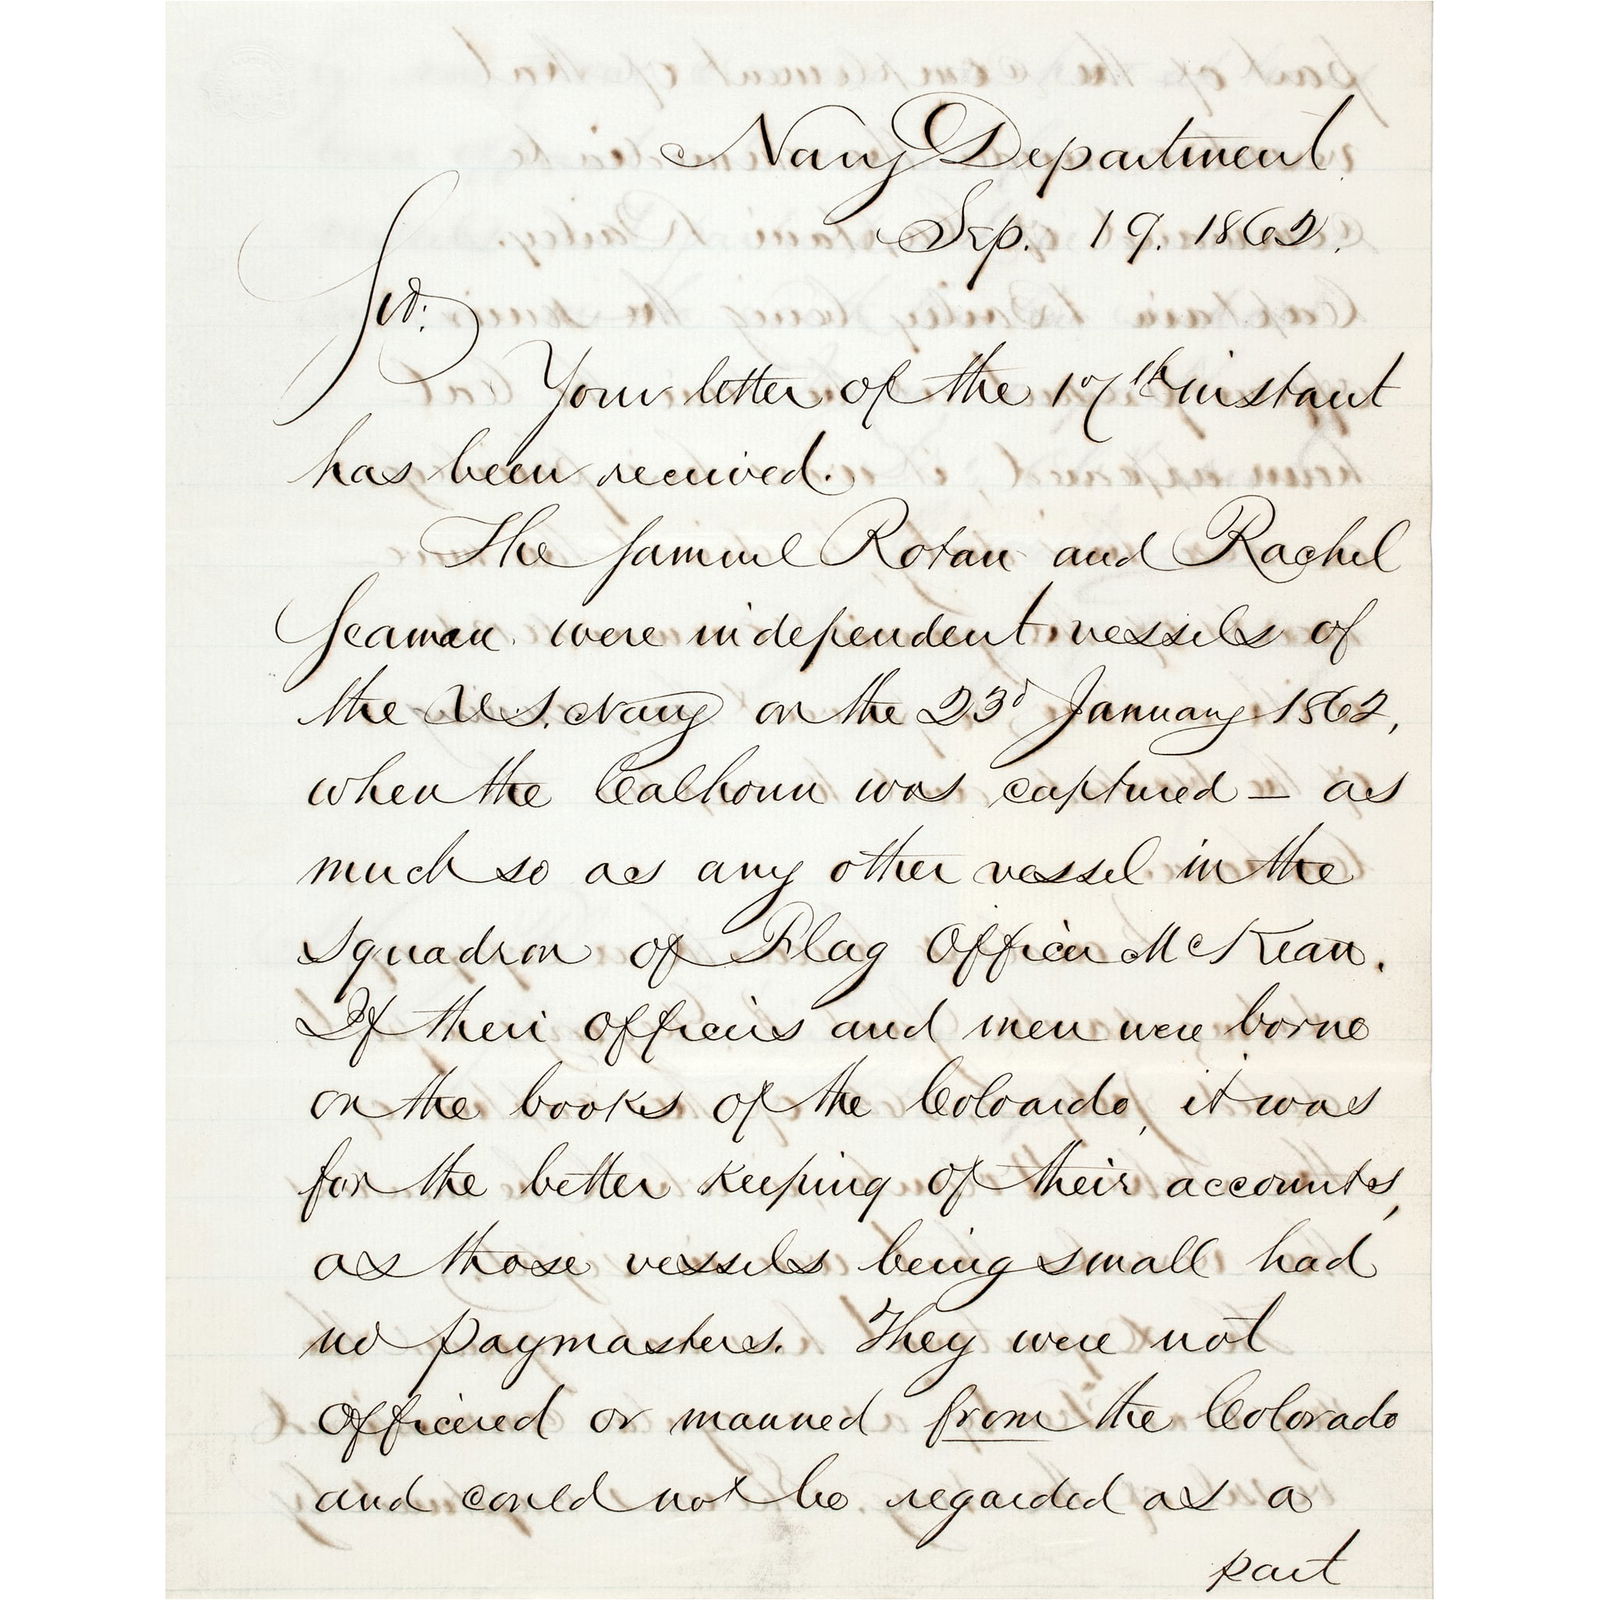 Navy Department.
Sep. 19. 1862.
Sir:
Your letter of the 17th instant
has been received.
The Samuel Rotan and Rachel
Seaman were independent vessels of
the U.S. Navy on the 23d January 1862,
when the Calhoun was captured – as
much so as any other vessel in the
squadron of Flag Officer McKean.
If their officers and men were borne
on the books of the Colorado, it was
for the better keeping of their accounts,
as those vessels being small had
no paymasters. They were not
officered or manned from the Colorado
and could not be regarded as a
part